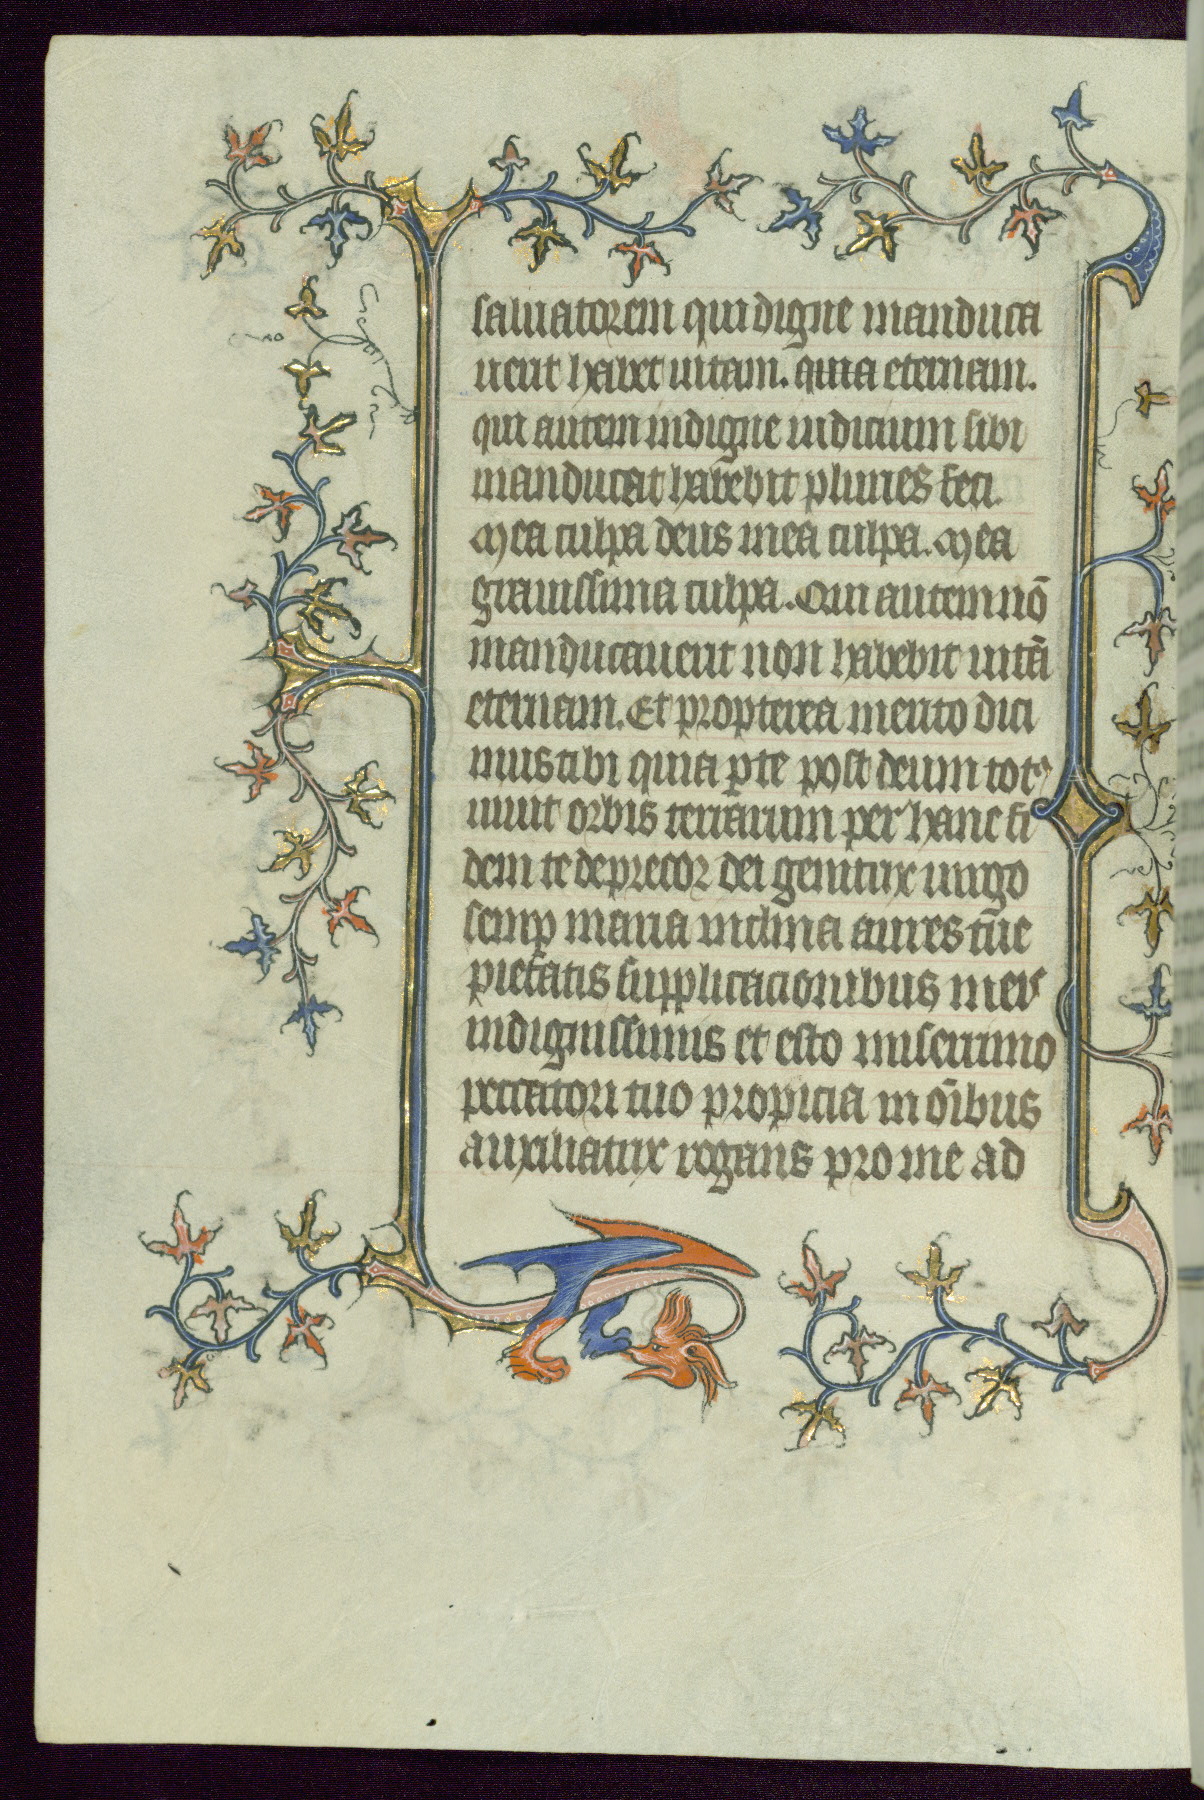 saluatorem qui digne manduca
uerit habet uitam. quia eternam.
qui autem indigne iudicium sibi
manducat habebit pluries feci.
Mea culpa deus mea culpa. Mea
grauissima culpa. Qui autem nō
manducauerit non habebit uitā
eternam. Et propterea merito dici
mus tibi quia p te post deum tot9
uiuit orbis terrarum per hanc fi
dem te deprecor dei genitrix uirgo
semp maria inclina aures tue
pietatis supplicacionibus meis
indignissimis et esto miserrimo
peccatori tuo propicia in oībus
auxiliatrix rogans pro me ad